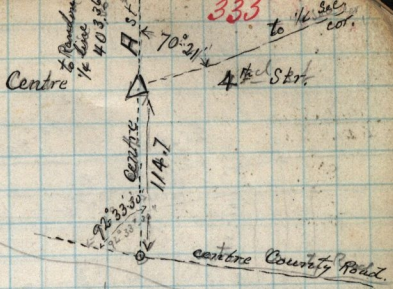 333
to Random
1/4 line
403.36
A St.
70°-21'
to 1/4 Sec.
cor.
Centre
4th Str.
Centre
114.7
92°33'30"
92°33'30"
centre County Road.